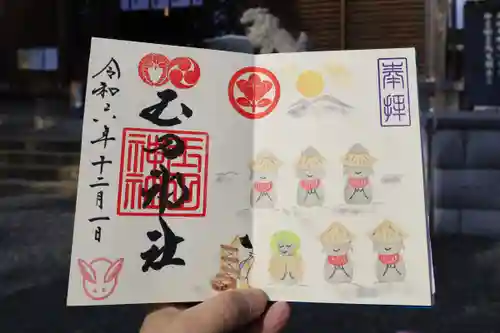 奉拝
玉田神社
玉田
神社
令和六年十二月一日